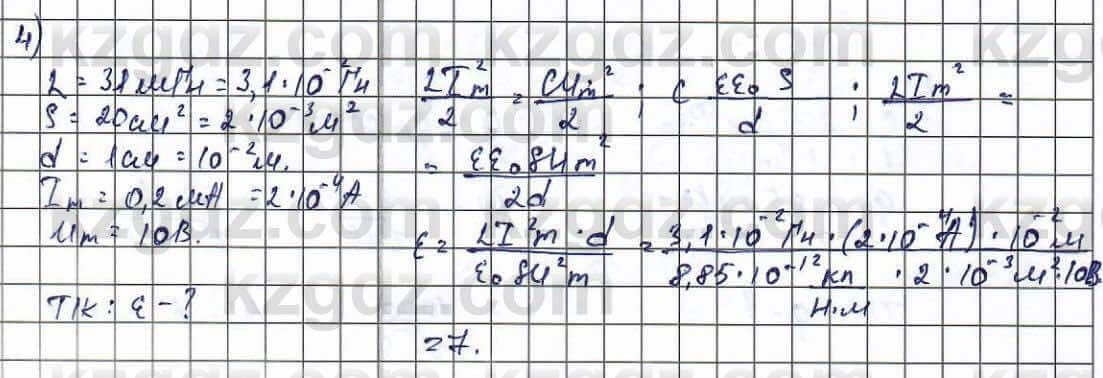 4)
L = 31 мГн = 3,1·10⁻²Гн
S = 20 см² = 2·10⁻³м²
d = 1 см = 10⁻²м.
Im = 0,2 мА = 2·10⁻⁴А
Um = 10В.
Т/к: ε - ?
LIm²/2 = CUm²/2 ; C εε₀ S/d ; LIm²/2 =
= εε₀SUm²/2d
ε = LI²m·d/ε₀SU²m = 3,1·10⁻²Гн·(2·10⁻⁴А)·10⁻²м/8,85·10⁻¹² кл/Н·м · 2·10⁻³м²·10В
=7.
kzgdz.com kzgdz.com kzgdz.com
kzgdz.com kzgdz.com kzgdz.com
kzgdz.com kzgdz.com kzgdz.com
kzgdz.com kzgdz.com